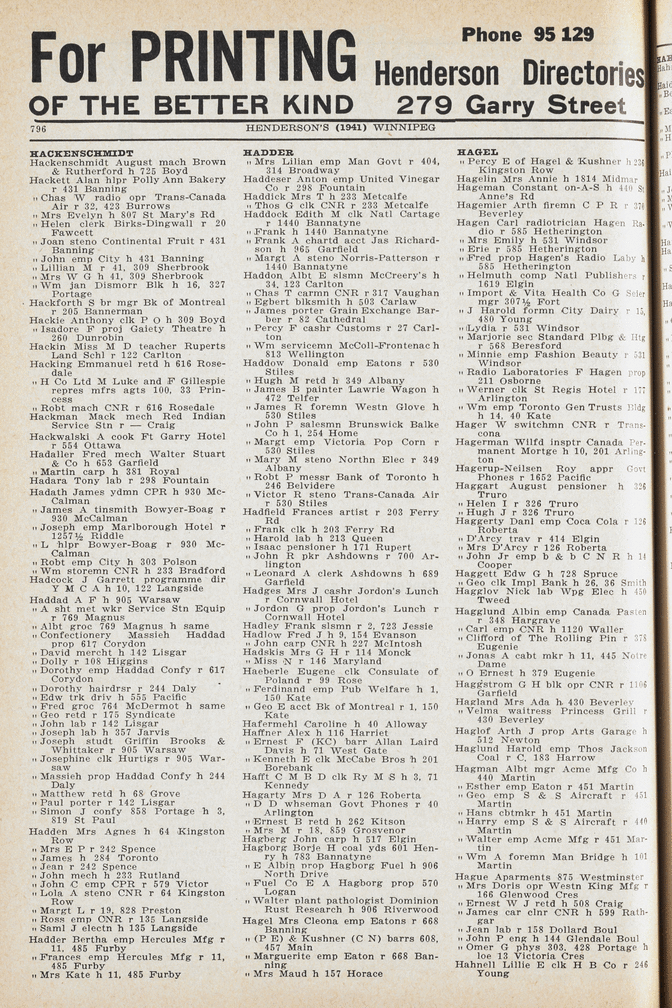 For PRINTING
OF THE BETTER KIND
Phone 95 129
Henderson Directories
279 Garry Street
796
HENDERSON'S (1941) WINNIPEG
HACKENSCHMIDT
Hackenschmidt August mach Brown
& Rutherford h 725 Boyd
Hackett Alan hlpr Polly Ann Bakery
r 431 Banning
" Chas W radio opr Trans-Canada
Air r 32, 423 Burrows
" Mrs Evelyn h 807 St Mary's Rd
" Helen clerk Birks-Dingwall r 20
Fawcett
" Joan steno Continental Fruit r 431
Banning
" John emp City h 431 Banning
" Lillian M r 41, 309 Sherbrook
" Mrs W G h 41, 309 Sherbrook
" Wm jan Dismorr Blk h 16, 327
Portage
Hackforth S br mgr Bk of Montreal
r 205 Bannerman
Hackie Anthony clk P O h 309 Boyd
" Isadore F proj Gaiety Theatre h
260 Dunrobin
Hackin Miss M D teacher Ruperts
Land Schl r 122 Carlton
Hacking Emmanuel retd h 616 Rose-
dale
" H Co Ltd M Luke and F Gillespie
repres mfrs agts 100, 33 Prin-
cess
" Robt mach CNR r 616 Rosedale
Hackman Mack mech Red Indian
Service Stn r — Craig
Hackwalski A cook Ft Garry Hotel
r 554 Ottawa
Hadaller Fred mech Walter Stuart
& Co h 653 Garfield
" Martin carp h 381 Royal
Hadara Tony lab r 298 Fountain
Hadath James ydmn CPR h 930 Mc-
Calman
" James A tinsmith Bowyer-Boag r
930 McCalman
" Joseph emp Marlborough Hotel r
1257½ Riddle
" L hlpr Bowyer-Boag r 930 Mc-
Calman
" Robt emp City h 303 Polson
" Wm storemn CNR h 233 Bradford
Hadcock J Garrett programme dir
Y M C A h 10, 122 Langside
Haddad A F h 905 Warsaw
" A sht met wkr Service Stn Equip
r 769 Magnus
" Albt groc 769 Magnus h same
" Confectionery Massieh Haddad
prop 617 Corydon
" David mercht h 142 Lisgar
" Dolly r 108 Higgins
" Dorothy emp Haddad Confy r 617
Corydon
" Dorothy hairdrsr r 244 Daly
" Edw trk driv h 555 Pacific
" Fred groc 764 McDermot h same
" Geo retd r 175 Syndicate
" John lab r 142 Lisgar
" Joseph lab h 357 Jarvis
" Joseph studt Griffin Brooks &
Whittaker r 905 Warsaw
" Josephine clk Hurtigs r 905 War-
saw
" Massieh prop Haddad Confy h 244
Daly
" Matthew retd h 68 Grove
" Paul porter r 142 Lisgar
" Simon J confy 858 Portage h 3,
819 St Paul
Hadden Mrs Agnes h 64 Kingston
Row
" Mrs E P r 242 Spence
" James h 284 Toronto
" Jean r 242 Spence
" John mech h 233 Rutland
" John C emp CPR r 579 Victor
" Lola A steno CNR r 64 Kingston
Row
" Margt L r 19, 828 Preston
" Ross emp CNR r 135 Langside
" Saml J electn h 135 Langside
Hadder Bertha emp Hercules Mfg r
11, 485 Furby
" Frances emp Hercules Mfg r 11,
485 Furby
" Mrs Kate h 11, 485 Furby
HADDER
" Mrs Lilian emp Man Govt r 404,
314 Broadway
Haddeser Anton emp United Vinegar
Co r 298 Fountain
Haddick Mrs T h 233 Metcalfe
" Thos G clk CNR r 233 Metcalfe
Haddock Edith M clk Natl Cartage
r 1440 Bannatyne
" Frank h 1440 Bannatyne
" Frank A chartd acct Jas Richard-
son h 965 Garfield
" Margt A steno Norris-Patterson r
1440 Bannatyne
Haddon Albt E slsmn McCreery's h
34, 123 Carlton
" Chas T carmn CNR r 317 Vaughan
" Egbert blksmith h 503 Carlaw
" James porter Grain Exchange Bar-
ber r 82 Cathedral
" Percy F cashr Customs r 27 Carl-
ton
" Wm servicemn McColl-Frontenac h
813 Wellington
Haddow Donald emp Eatons r 530
Stiles
" Hugh M retd h 349 Albany
" James B painter Lawrie Wagon h
472 Telfer
" James R foremn Westn Glove h
530 Stiles
" John P salesmn Brunswick Balke
Co h 1, 254 Home
" Margt emp Victoria Pop Corn r
530 Stiles
" Mary M steno Northn Elec r 349
Albany
" Robt P messr Bank of Toronto h
246 Belvidere
" Victor R steno Trans-Canada Air
r 530 Stiles
Hadfield Frances artist r 203 Ferry
Rd
" Frank clk h 203 Ferry Rd
" Harold lab h 213 Queen
" Isaac pensioner h 171 Rupert
" John R pkr Ashdowns r 700 Ar-
lington
" Leonard A clerk Ashdowns h 689
Garfield
Hadges Mrs J cashr Jordon's Lunch
r Cornwall Hotel
" Jordon G prop Jordon's Lunch r
Cornwall Hotel
Hadley Frank slsmn r 2, 723 Jessie
Hadlow Fred J h 9, 154 Evanson
" John carp CNR h 227 McIntosh
Hadskis Mrs G H r 114 Monck
" Miss N r 146 Maryland
Haeberle Eugene clk Consulate of
Poland r 99 Rose
" Ferdinand emp Pub Welfare h 1,
150 Kate
" Geo E acct Bk of Montreal r 1, 150
Kate
Hafermehl Caroline h 40 Alloway
Haffner Alex h 116 Harriet
" Ernest F (KC) barr Allan Laird
Davis h 71 West Gate
" Kenneth E clk McCabe Bros h 201
Borebank
Hafft C M B D clk Ry M S h 3, 71
Kennedy
Hagarty Mrs D A r 126 Roberta
" D D whseman Govt Phones r 40
Arlington
" Ernest B retd h 262 Kitson
" Mrs M r 18, 859 Grosvenor
Hagberg John carp h 517 Elgin
Hagborg Borje H coal yds 601 Hen-
ry h 783 Bannatyne
" E Albin prop Hagborg Fuel h 906
North Drive
" Fuel Co E A Hagborg prop 570
Logan
" Walter plant pathologist Dominion
Rust Research h 906 Riverwood
Hagel Mrs Cleona emp Eatons r 668
Banning
" (P E) & Kushner (C N) barrs 608,
457 Main
" Marguerite emp Eaton r 668 Ban-
ning
" Mrs Maud h 157 Horace
HAGEL
" Percy E of Hagel & Kushner h 236
Kingston Row
Hagelin Mrs Annie h 1814 Midmar
Hageman Constant on-A-S h 440 St
Anne's Rd
Hagemier Arth firemn C P R r 378
Beverley
Hagen Carl radiotrician Hagen Ra-
dio r 585 Hetherington
" Mrs Emily h 531 Windsor
" Eric r 585 Hetherington
" Fred prop Hagen's Radio Laby h
585 Hetherington
" Helmuth comp Natl Publishers r
1619 Elgin
" Import & Vita Health Co G Seier
mgr 307½ Fort
" J Harold formn City Dairy r 15,
480 Young
" Lydia r 531 Windsor
" Marjorie sec Standard Plbg & Htg
r 568 Beresford
" Minnie emp Fashion Beauty r 531
Windsor
" Radio Laboratories F Hagen prop
211 Osborne
" Werner clk St Regis Hotel r 177
Arlington
" Wm emp Toronto Gen Trusts Bldg
h 14, 40 Kate
Hager W switchmn CNR r Trans-
cona
Hagerman Wilfd insptr Canada Per-
manent Mortge h 10, 201 Arling-
ton
Hagerup-Neilsen Roy appr Govt
Phones r 1652 Pacific
Haggart August pensioner h 326
Truro
" Helen I r 326 Truro
" Hugh J r 326 Truro
Haggerty Danl emp Coca Cola r 126
Roberta
" D'Arcy trav r 414 Elgin
" Mrs D'Arcy r 126 Roberta
" John Jr emp b & b C N R h 14
Cooper
Haggett Edw G h 728 Spruce
" Geo clk Impl Bank h 26, 36 Smith
Hagglov Nick lab Wpg Elec h 450
Tweed
Hagglund Albin emp Canada Pasten
r 348 Hargrave
" Carl emp CNR h 1120 Waller
" Clifford of The Rolling Pin r 378
Eugenie
" Jonas A cabt mkr h 11, 445 Notre
Dame
" O Ernest h 379 Eugenie
Haggstrom G H blk opr CNR r 1106
Garfield
Hagland Mrs Ada h 430 Beverley
" Velma waitress Princess Grill r
430 Beverley
Haglof Arth J prop Arts Garage h
512 Newton
Haglund Harold emp Thos Jackson
Coal r C, 183 Harrow
Hagman Albt mgr Acme Mfg Co h
440 Martin
" Esther emp Eaton r 451 Martin
" Geo emp S & S Aircraft r 451
Martin
" Hans cbtmkr h 451 Martin
" Harry emp S & S Aircraft r 440
Martin
" Walter emp Acme Mfg r 451 Mar-
tin
" Wm A foremn Man Bridge h 101
Martin
Hague Aparments 875 Westminster
" Mrs Doris opr Westn King Mfg r
166 Glenwood Cres
" Ernest W J retd h 508 Craig
" James car clnr CNR h 599 Rath-
gar
" Jean lab r 158 Dollard Boul
" John P eng h 144 Glendale Boul
" Omer G phys 303, 428 Portage h
loe 13 Victoria Cres
Hahnell Lillie E clk H B Co r 246
Young